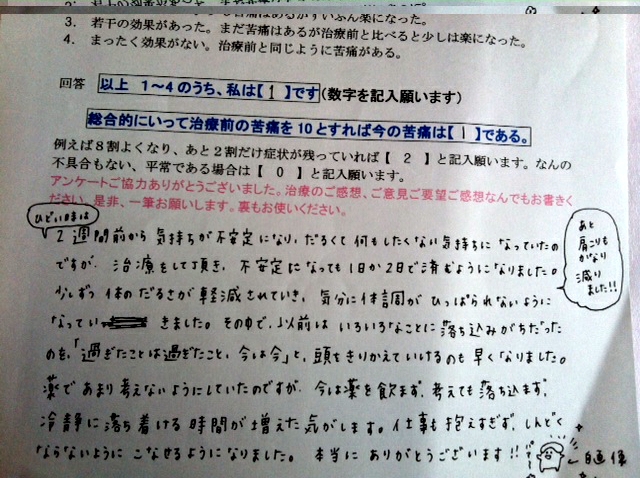 3. 若干の効果があった。まだ苦痛はあるが治療前と比べると少しは楽になった。
4. まったく効果がない。治療前と同じように苦痛がある。
回答 以上 1～4のうち、私は【 1 】です(数字を記入願います)
総合的にいって治療前の苦痛を10とすれば今の苦痛は【 1 】である。
例えば8割よくなり、あと2割だけ症状が残っていれば【 2 】と記入願います。なんの
不具合もない、平常である場合は【 0 】と記入願います。
アンケートご協力ありがとうございました。治療のご感想、ご意見ご要望ご感想なんでもお書きく
ださい。是非、一筆お願いします。裏もお使いください。
ひどい時は
2週間前から 気持ちが不安定になり、だるくて何もしたくない気持ちに なっていたの
ですが、治療をして頂き、不安定になっても1日か2日で済むようになりました。
少しずつ 体のだるさが 軽減されていき、気分に体調が ひっぱられないように
なってい きました。その中で、以前は いろいろなことに落ち込みがちだった
のも、「過ぎたことは過ぎたこと、今は今」と、頭をきりかえていけるのも 早くなりました。
薬であまり考えないようにしていたのですが、今は薬を飲まず、考えても落ち込まず、
冷静に落ち着ける時間が増えた気がします。仕事も抱えすぎず、しんどく
ならないように こなせるようになりました。本当に ありがとうございます!!
あと
肩こりも
かなり
減り
ました!!
自画像